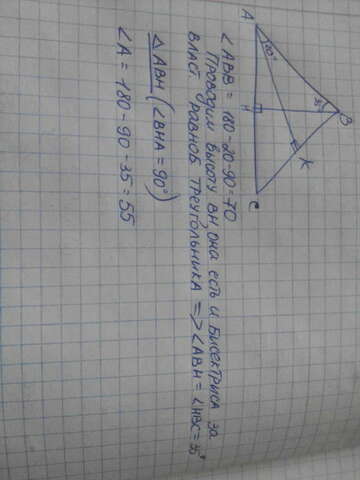 A
B
C
H
K
20°
35
∠ABB = 180-20-90=70
Проводим высоту BH, она есть и бисектрыса за
власт равноб треугольника => ∠ABH = ∠HBC=35°
△ABH (∠BHA = 90°)
∠A = 180-90-35=55